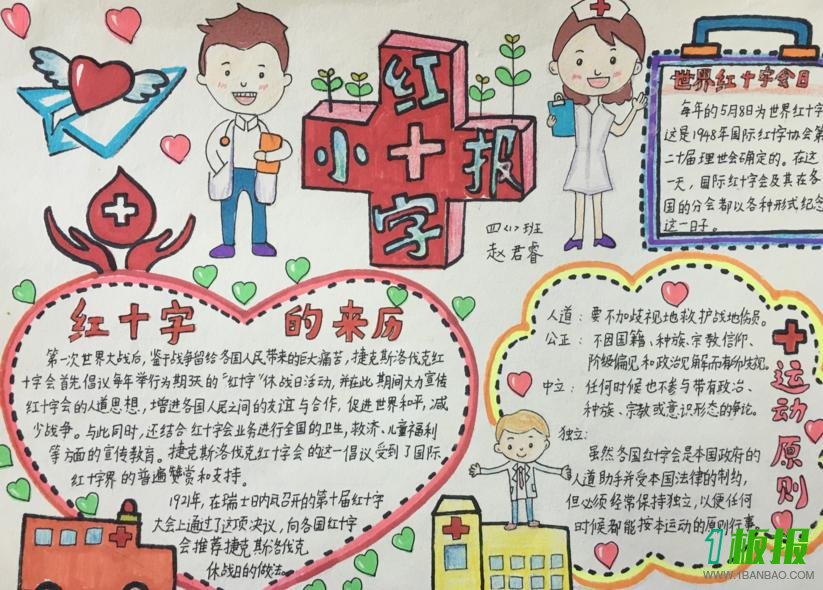 红十字小报
四〈1〉班
赵君睿
世界红十字会日
每年的5月8日为世界红十字
这是1948年国际红十字协会第
二十届理世会确定的。在这
一天，国际红十字会及其在各
国的分会都以各种形式纪念
这一日子。
红十字的来历
第一次世界大战后，鉴于战争留给各国人民带来的巨大痛苦，捷克斯洛伐克红
十字会首先倡议每年举行为期3天的“红十字”休战日活动，并在此期间大力宣传
红十字会的人道思想，增进各国人民之间的友谊与合作，促进世界和平，减
少战争。与此同时，还结合红十字会业务进行全国的卫生，救济、儿童福利
等方面的宣传教育。捷克斯洛伐克红十字会的这一倡议受到了国际
红十字界的普遍赞赏和支持。
1921年，在瑞士日内瓦召开的第十届红十字
大会上通过了这项决议，向各国红十字
会推荐捷克斯洛伐克
休战日的做法。
运动原则
人道：要不加歧视地救护战地伤员。
公正：不因国籍、种族、宗教信仰、
阶级偏见和政治见解而有所歧视。
中立：任何时候也不参与带有政治、
种族、宗教或意识形态的争论。
独立：
虽然各国红十字会是本国政府的
人道助手并受本国法律的制约，
但必须经常保持独立，以便任何
时候都能按本运动的原则行事
1板报
WWW.1BANBAO.COM